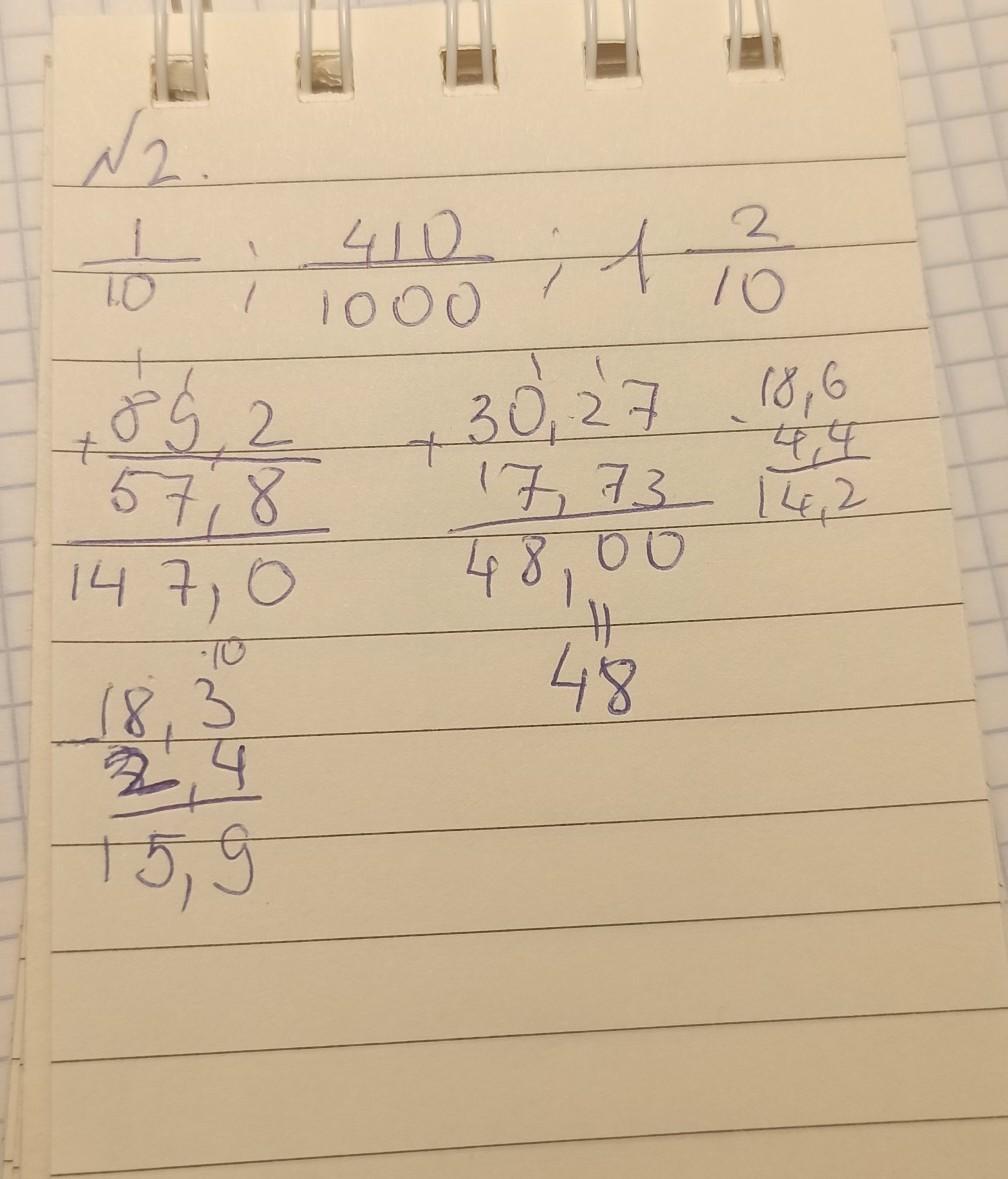 №2.
1/10 ; 410/1000 ; 1 2/10
1 1
+ 89,2
57,8
147,0
1 1
+ 30,27
17,73
48,00
=
48
- 18,6
4,4
14,2
·10
- 18,3
2,4
15,9